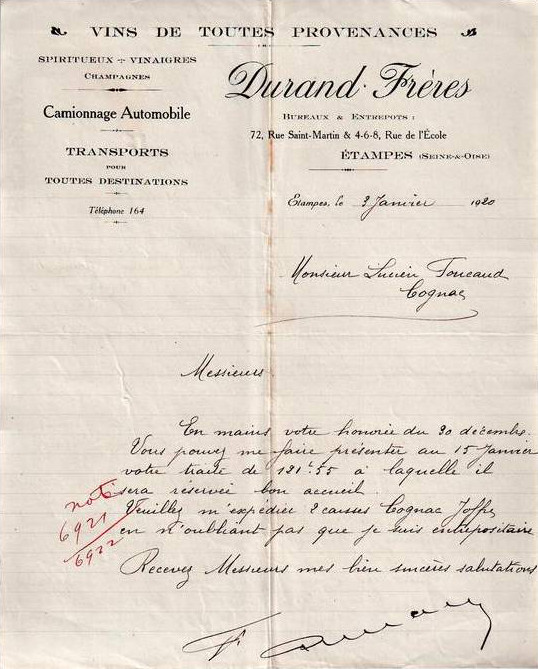 VINS DE TOUTES PROVENANCES
SPIRITUEUX + VINAIGRES
CHAMPAGNES
Camionnage Automobile
TRANSPORTS
POUR
TOUTES DESTINATIONS
Téléphone 164
Durand Frères
BUREAUX & ENTREPOTS :
72, Rue Saint-Martin & 4-6-8, Rue de l'École
ÉTAMPES (SEINE-&-OISE)
Etampes, le 3 Janvier 1920
Monsieur Lucien Foucaud
Cognac
Messieurs
En mains votre honorée du 30 décembre.
Vous pouvez me faire présenter au 15 Janvier
votre traite de 121f.55 à laquelle il
sera réservée bon accueil.
Veuillez m'expédier 2 caisses Cognac Joffre
en n'oubliant pas que je suis entrepositaire
Recevez Messieurs mes bien sincères salutations
noté
6921
6922